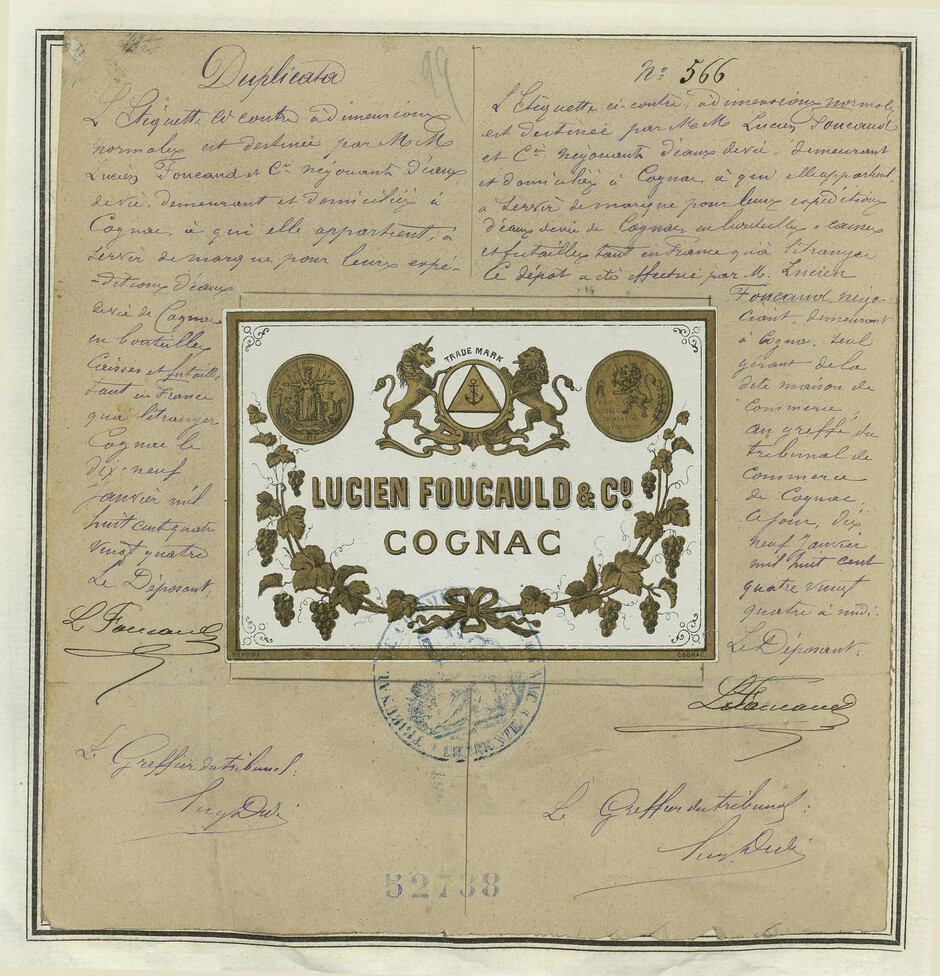 Duplicata
L'Etiquette ci contre à dimensions
normales est destinée par MM
Lucien Foucauld et Cie négociants d'eaux
de vie, demeurant et domiciliés à
Cognac, à qui elle appartient, à
servir de marque pour leurs expé-
-ditions d'eaux
de vie de Cognac
en bouteilles
Caisses et futailles
tant en France
qu'à l'étranger
Cognac le
dix-neuf
Janvier mil
huit cent quatre
vingt quatre
Le Déposant,
L Foucauld
Le Greffier du tribunal:
No 566
L'Etiquette ci-contre, à dimensions normales
est destinée par MM Lucien Foucauld
et Cie négociants d'eaux de vie, demeurant
et domiciliés à Cognac à qui elle appartient,
à servir de marque pour leurs expéditions
d'eaux de vie de Cognac en bouteilles, caisses
et futailles tant en France qu'à l'étranger
Ce dépôt a été effectué par M. Lucien
Foucauld, négo-
ciant, demeurant
à Cognac, seul
gérant de la
dite maison de
commerce,
au greffe du
tribunal de
Commerce
de Cognac,
ce jour, dix
neuf Janvier
mil huit cent
quatre vingt
quatre à midi.
Le Déposant:
L Foucauld
Le Greffier du tribunal:
TRADE MARK
LUCIEN FOUCAULD & Co.
COGNAC
DÉPOSÉ
COGNAC
52738